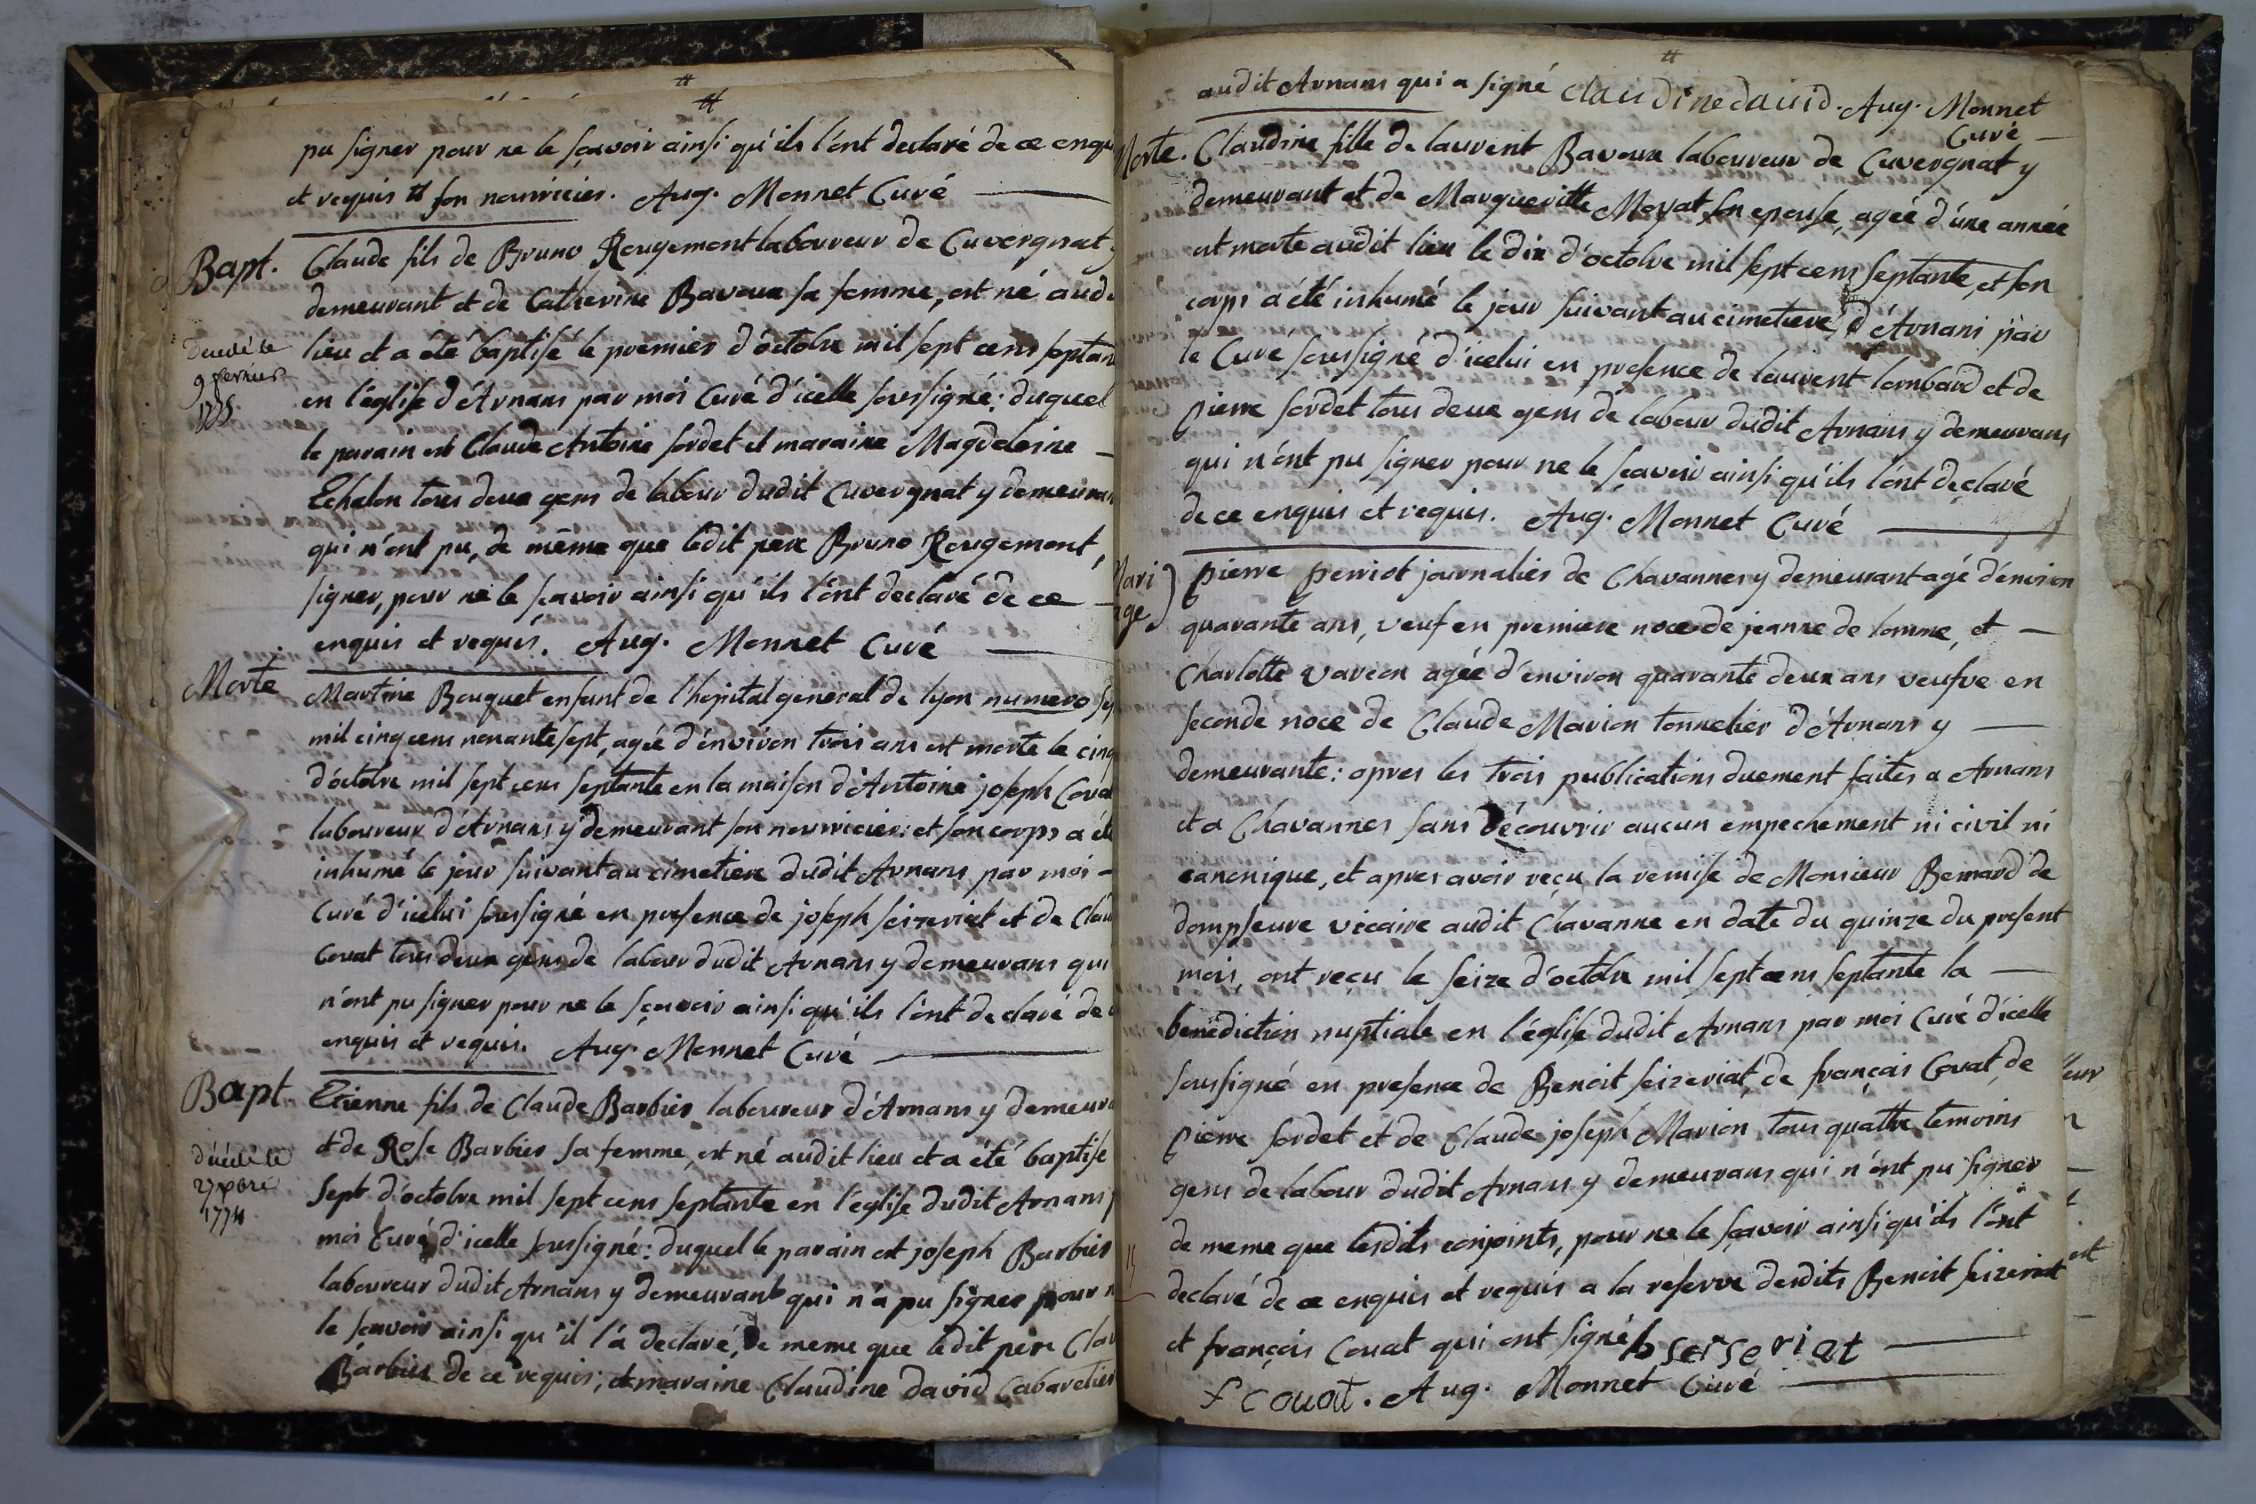 pu signer pour ne le sçavoir ainsi qu'ils l'ont declaré de ce enqu
et requis # son nourricier. Aug. Monnet Curé
Bapt. Claude fils de Bruno Rougemont laboureur de Cuvergnat y
demeurant et de Catherine Bavoux sa femme, est né aud
decedé le
9 fevrier
1775.
lieu et a été baptisé le premier d'octobre mil sept cens septan
en l'église d'Arnans par moi Curé d'icelle soussigné: duquel
le parain est Claude Antoine sordet et maraine Magdeleine
Echalon tous deux gens de labour dudit Cuvergnat y demeuran
qui n'ont pu, de même que ledit pere Bruno Rougemont,
signer, pour ne le sçavoir ainsi qu'ils l'ont declaré de ce
enquis et requis. Aug. Monnet Curé
Morte Martine Bouquet enfant de l'hopital general de lyon numero sep
mil cinq cens nonante sept, agée d'environ trois ans est morte le cinq
d'octobre mil sept cens septante en la maison d'Antoine joseph Couat
laboureur d'Arnans y demeurant son nourricier: et son corps a été
inhumé le jour suivant au cimetiere dudit Arnans par moi
Curé d'icelui soussigné en presence de joseph seizeriat et de Clau
Couat tous deux gens de labour dudit Arnans y demeurans qui
n'ont pu signer pour ne le sçavoir ainsi qu'ils l'ont declaré de c
enquis et requis. Aug. Monnet Curé
Bapt Etienne fils de Claude Barbier laboureur d'Arnans y demeura
et de Rose Barbier sa femme, est né audit lieu et a été baptisé
décédé le
27 xbre
1774
sept d'octobre mil sept cens septante en l'église dudit Arnans p
moi Curé d'icelle soussigné: duquel le parain est joseph Barbier
laboureur dudit Arnans y demeurant qui n'a pu signer pour n
le sçavoir ainsi qu'il l'a declaré, de meme que ledit pere Clau
Barbier de ce requis; et maraine Claudine david Cabaretier
audit Arnans qui a signé claudine dauid. Aug. Monnet
Curé
Morte. Claudine fille de laurent Bavoux laboureur de Cuvergnat y
demeurant et de Margueritte Moyat son epouse, agée d'une année
est morte audit lieu le dix d'octobre mil sept cens septante, et son
corps a été inhumé le jour suivant au cimetiere d'Arnans par
le Curé soussigné d'icelui en presence de laurent lombard et de
pierre sordet tous deux gens de labour dudit Arnans y demeurans
qui n'ont pu signer pour ne le sçavoir ainsi qu'ils l'ont declaré
de ce enquis et requis. Aug. Monnet Curé
Mari
age
pierre perriot journalier de Chavannes y demeurant agé d'environ
quarante ans, veuf en premiere noce de jeanne de lomme, et
Charlotte vareon agée d'environ quarante deux ans veufve en
seconde noce de Claude Marion tonnelier d'Arnans y
demeurante: apres les trois publications duement faites a Arnans
et a Chavannes sans découvrir aucun empechement ni civil ni
canonique, et apres avoir reçu la remise de Monsieur Bernard de
dompseure vicaire audit Chavanne en date du quinze du present
mois, ont reçu le seize d'octobre mil sept cens septante la
benediction nuptiale en l'église dudit Arnans par moi Curé d'icelle
soussigné en presence de Benoit seizeriat, de françois Couat, de
pierre sordet et de Claude joseph Marion, tous quattre temoins
gens de labour dudit Arnans y demeurans qui n'ont pu signer
de meme que lesdits conjoints, pour ne le sçavoir ainsi qu'ils l'ont
declaré de ce enquis et requis a la reserve desdits Benoit seizeriat
et françois Couat qui ont signé b seiseriat
f couat. Aug. Monnet Curé